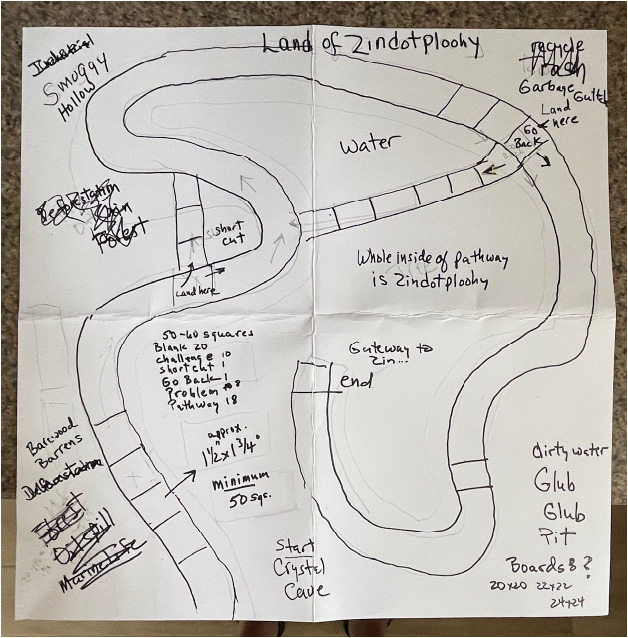 Land of Zindotploohy
Industrial
Smoggy
Hollow
recycle
Trash
Garbage
Gulch
Land
here
Go
Back
Water
Deforestation
Rain
Forest
short
cut
Land here
Whole inside of pathway
is Zindotploohy
50-60 squares
Blank 20
challenge 10
short cut 1
Go Back 1
Problem 8
Pathway 18
Gateway to
Zin...
end
approx.
1 1/2" x 1 3/4"
minimum
50 sqs.
Barwood
Barrens
Oil spill
Marine Life
Start
Crystal
Cave
dirty water
Glub
Glub
Pit
Boards ?
20x20 22x22
24x24